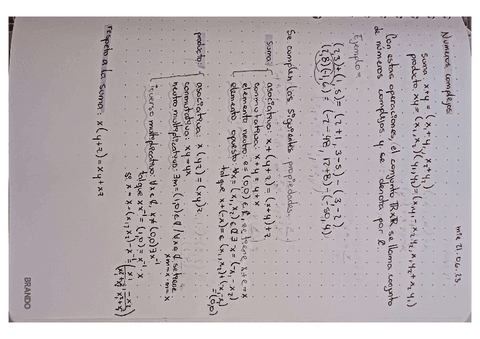 mie 21.06.23
Numeros complejos
suma: x+y = (x₁+y₁, x₂+y₂)
producto: xy = (x₁,x₂)(y₁,y₂) = (x₁y₁-x₂y₂, x₁y₂+x₂y₁)
Con estas operaciones, el conjunto RxR se llama conjunto
de números complejos y se denota por ℂ
Ejemplo:
(2,3)+(1,-5) = (2+1, 3-5) = (3,-2)
(2,8)(-1,6) = (-2-48, 12-8) = (-50,4)
Se cumplen las siguientes propiedades:
suma:
asociativa: x+(y+z) = (x+y)+z
conmutativa: x+y = y+x
elemento neutro: e = (0,0) ∈ ℂ, se tiene x+e = x
elemento opuesto: ∀x = (x₁,x₂) ∈ ℂ ∃ -x = (-x₁,-x₂)
tal que x+(-x) = (x₁,x₂)+(-x₁,-x₂) = (0,0)
producto:
asociativa: x(yz) = (xy)z
conmutativa: xy = yx
neutro multiplicativo: ∃ m = (1,0) ∈ ℂ / ∀x ∈ ℂ, se tiene
xm = x = mx
inverso multiplicativo: ∀x ∈ ℂ, x ≠ (0,0) ∃ x⁻¹
tal que xx⁻¹ = (1,0) = x⁻¹x
respecto a la suma: x(y+z) = xy+xz
BRANDO